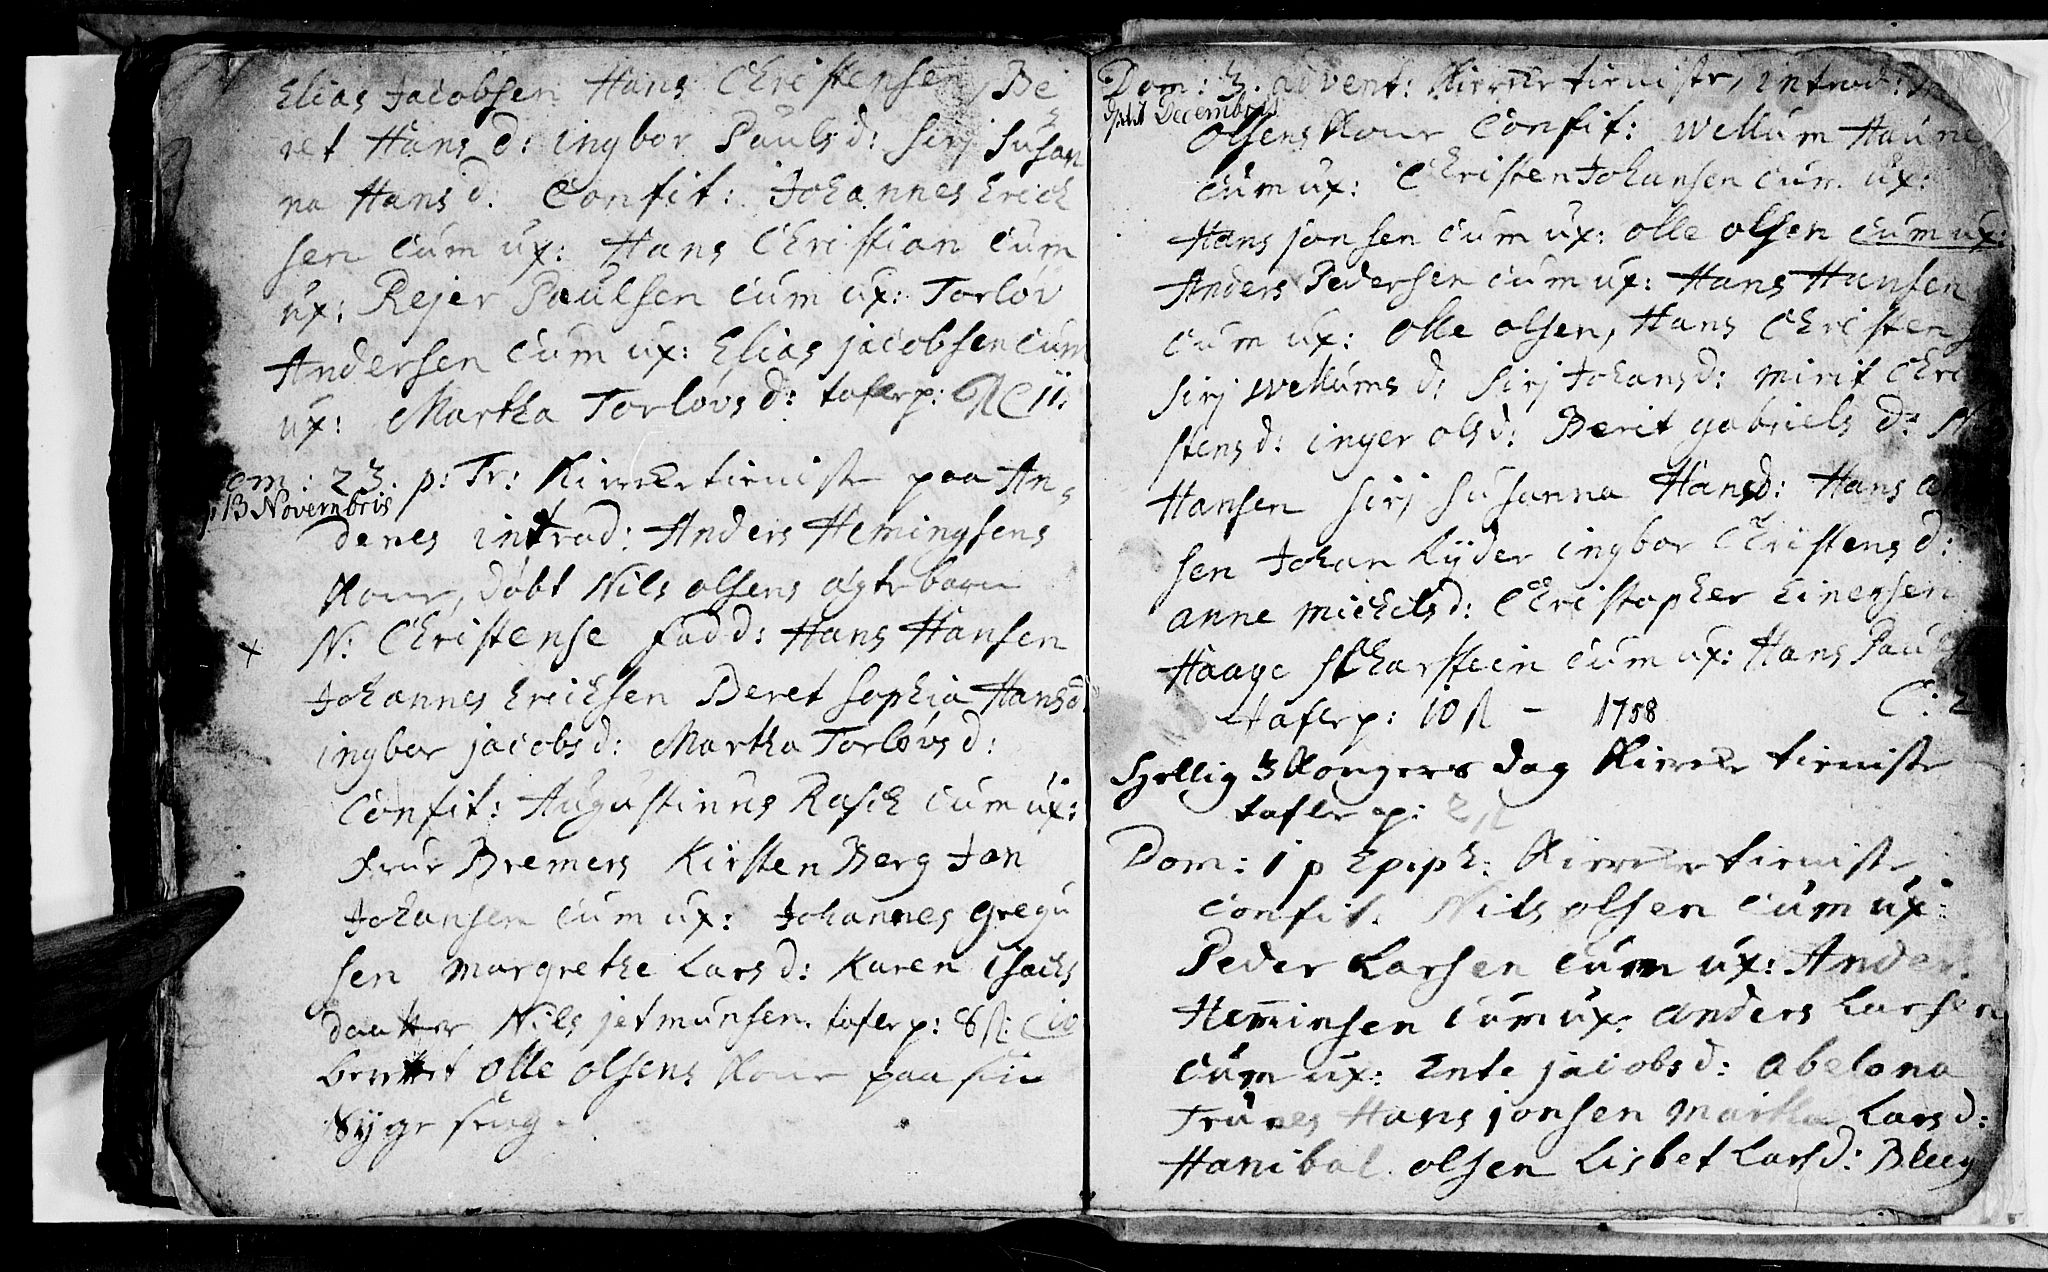 Elias Jacobsen Hans Christensen, Be
ret Hans d: ingbor Pauls d: Sirj Susan
na Hans d. Confit: Johannes Erich
sen cum ux: Hans Christian cum
ux: Rejer Paulsen cum ux: Torlov
Andersen cum ux: Elias jacobsen cum
ux: Martha Torlovs d: taflep:
om: 23. p: Tr: Kirketieniste paa An
13 Novembris
denes introd: Anders Hemingsens
Kone, døbt Nils olsens ægte barn
N: Christense Fadd: Hans Hansen
Johannes Erichsen Beret Sophia Hansd
ingbor jacobs d: Martha Torlovs d:
Confit: Augustinus Rasch cum ux:
Frue Bremers Kirsten Berg Jon
Johansen cum ux: Johannes gregu
sen Margrethe Lars d: Karen Isachs
daatter Nils jetmunsen. taflep: 8
berettet Olle Olsens Kone paa sin
Syge seng.
Dom: 3. advent: Kirketieniste, introd:
Decembris
Olsens Kone Confit: Wellum Haune
cum ux: Christen Johansen cum ux:
Hans jonsen cum ux: Olle Olsen cum ux:
Anders Pedersen cum ux: Hans Hansen
cum ux: Olle Olsen, Hans Christens
Sirj Wellums d: Sirj Johans d: Mirit Chri
stens d: inger ols d: Berit gabriels d:
Hansen Sirj Susanna Hansd: Hans
sen Johan Ryder ingbor Christens d:
anne Michelsd: Christopher Einersen
Haage Scharstein cum ux: Hans Pauls
taflep: 10 – 1758 C: 2
Hellig 3 Kongers dag Kirketieniste
taflep: 2
Dom: 1 p Epiph: Kirketieniste,
Confit. Nils olsen cum ux:
Peder Larsen cum ux: Anders
Heminsen cum ux: anders Larsen
cum ux: Ente jacobs d: abelona
Trunes Hans jonsen Martha Lars d:
Hanibal olsen Lisbet Larsd: